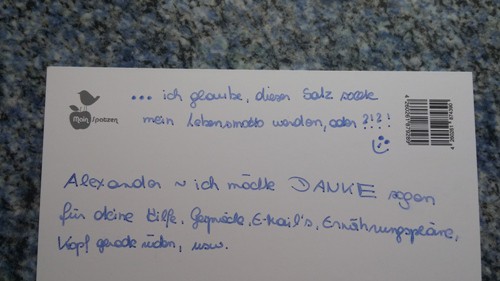 ... ich glaube, dieser Satz sollte
mein Lebensmotto werden, oder ?!?!
Mein
Alexander ~ ich möchte DANKE sagen
für deine Hilfe, Gespräche, E-Mail's, Ernährungspläne,
Kopf gerade rücken, usw.